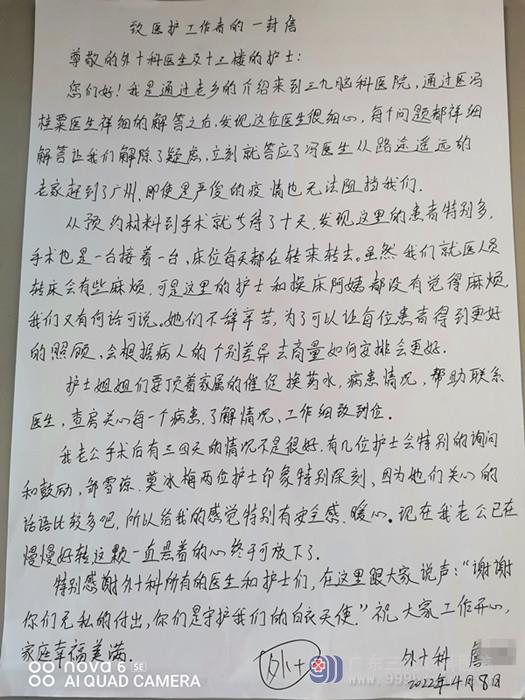 致医护工作者的一封信
尊敬的外十科医生及十三楼的护士：
您们好！我是通过老乡的介绍来到三九脑科医院，通过医冯
桂粟医生详细的解答之后，发现这位医生很细心，每个问题都详细
解答让我们解除了疑虑，立刻就答应了冯医生从路途遥远的
老家赶到了广州，即使是严俊的疫情也无法阻挡我们。
从预约材料到手术就等待了十天，发现这里的患者特别多，
手术也是一台接着一台，床位每天都在转来转去。虽然我们就医人员
转床会有些麻烦，可是这里的护士和换床阿姨都没有觉得麻烦，
我们又有何话可说。她们不辞辛苦，为了可以让每位患者得到更好
的照顾，会根据病人的个别差异去商量如何安排会更好。
护士姐姐们要顶着家属的催促换药水，病患情况，帮助联系
医生，查房关心每一个病患，了解情况，工作细致到位。
我老公手术后有三四天的情况不是很好，有几位护士会特别的询问
和鼓励，邹雪琼、莫冰梅两位护士印象特别深刻，因为她们关心的
话语比较多吧，所以给我的感觉特别有安全感、暖心。现在我老公已在
慢慢好转这颗一直悬着的心终于可放下了。
特别感谢外十科所有的医生和护士们，在这里跟大家说声：“谢谢
你们无私的付出，你们是守护我们的白衣天使。”祝大家工作开心，
家庭幸福美满。
外十
外十科 詹
2022年4月8日
nova 6 SE
AI QUAD CAMERA
广东三九脑科医院